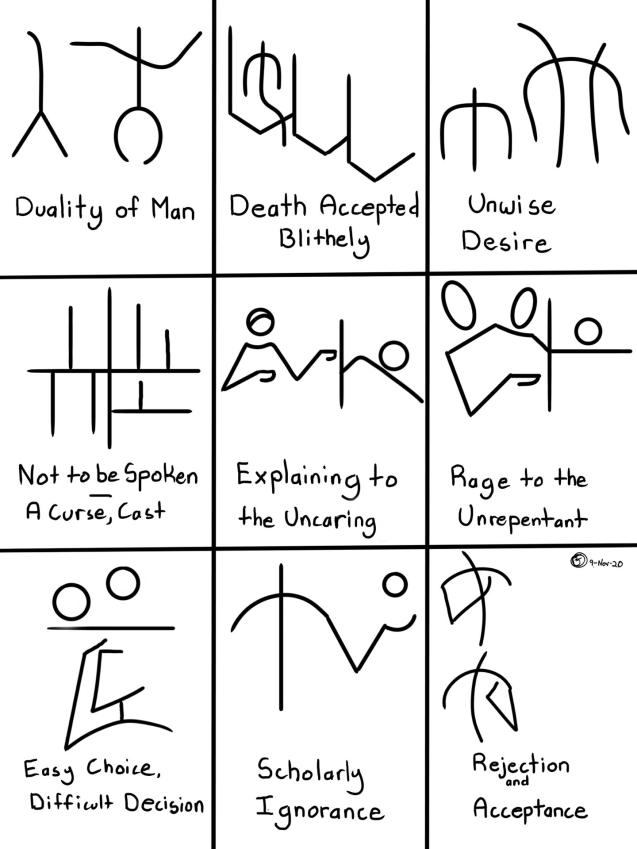 Duality of Man
Death Accepted
Blithely
Unwise
Desire
Not to be Spoken
A Curse, Cast
Explaining to
the Uncaring
Rage to the
Unrepentant
9-Nov-20
Easy Choice,
Difficult Decision
Scholarly
Ignorance
Rejection
and
Acceptance